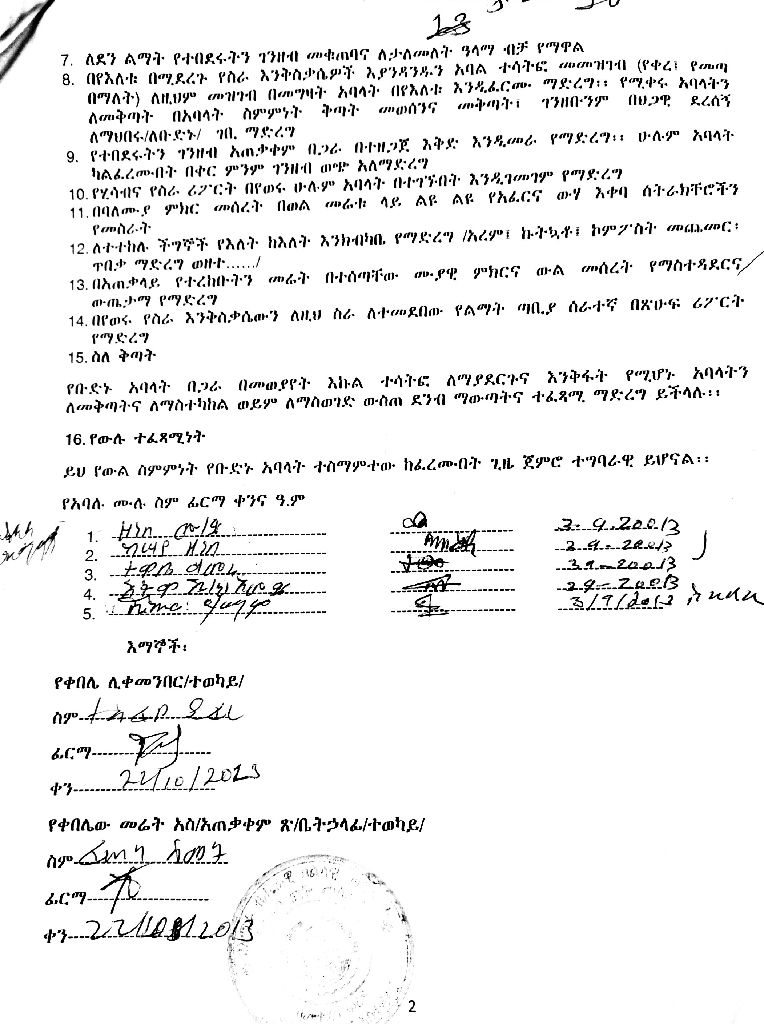 13
7. ለደን ልማት የተበደሩትን ገንዘብ መቁጠባና ለታለመለት ዓላማ ብቻ የማዋል
8. በየእለቱ በሚደረጉ የስራ እንቅስቃሴዎች እያንዳንዱን አባል ተሳትፎ መመዝገብ (የቀረ፤ የመጣ
በማለት) ለዚህም መዝገብ በመግዛት አባላት በየእለቱ እንዲፈርሙ ማድረግ፡፡ የሚቀሩ አባላትን
ለመቅጣት በአባላት ስምምነት ቅጣት መወሰንና መቅጣት፤ ገንዘቡንም በህጋዊ ደረሰኝ
ለማህበሩ/ለቡድኑ/ ገቢ ማድረግ
9. የተበደሩትን ገንዘብ አጠቃቀም በጋራ በተዘጋጀ እቅድ እንዲመራ የማድረግ፡፡ ሁሉም አባላት
ካልፈረሙበት በቀር ምንም ገንዘብ ወጭ አለማድረግ
10. የሂሳብና የስራ ሪፖርት በየወሩ ሁሉም አባላት በተገኙበት እንዲገመገም የማድረግ
11. በባለሙያ ምክር መሰረት በወል መሬቱ ላይ ልዩ ልዩ የአፈርና ውሃ እቀባ ስትራክቸሮችን
የመስራት
12. ለተተከሉ ችግኞች የእለት ከእለት እንክብካቤ የማድረግ /አረም፤ ኩትኳቶ፤ ኮምፖስት መጨመር፡
ጥበቃ ማድረግ ወዘተ....../
13. በአጠቃላይ የተረከቡትን መሬት በተሰጣቸው ሙያዊ ምክርና ውል መሰረት የማስተዳደርና
ውጤታማ የማድረግ
14. በየወሩ የስራ እንቅስቃሴውን ለዚህ ስራ ለተመደበው የልማት ጣቢያ ሰራተኛ በጽሁፍ ሪፖርት
የማድረግ
15. ስለ ቅጣት
የቡድኑ አባላት በጋራ በመወያየት እኩል ተሳትፎ ለማያደርጉና እንቅፋት የሚሆኑ አባላትን
ለመቅጣትና ለማስተካከል ወይም ለማስወገድ ውስጠ ደንብ ማውጣትና ተፈጻሚ ማድረግ ይችላሉ፡፡
16. የውሉ ተፈጻሚነት
ይህ የውል ስምምነት የቡድኑ አባላት ተስማምተው ከፈረሙበት ጊዜ ጀምሮ ተግባራዊ ይሆናል፡፡
የአባሉ ሙሉ ስም ፊርማ ቀንና ዓ.ም
1. 3-9-2013
2. 2013
3. 2013
4. 2013
5. 3/9/2013
እማኞች፡
የቀበሌ ሊቀመንበር/ተወካይ/
ስም
ፊርማ
ቀን 22/10/2013
የቀበሌው መሬት አስ/አጠቃቀም ጽ/ቤትኃላፊ/ተወካይ/
ስም
ፊርማ
ቀን 22/10/2013
2